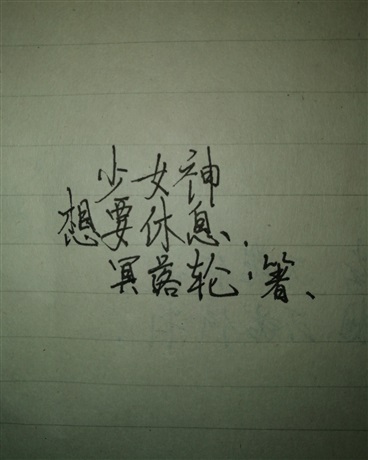 少女神
想要休息、
冥落轮·箸、